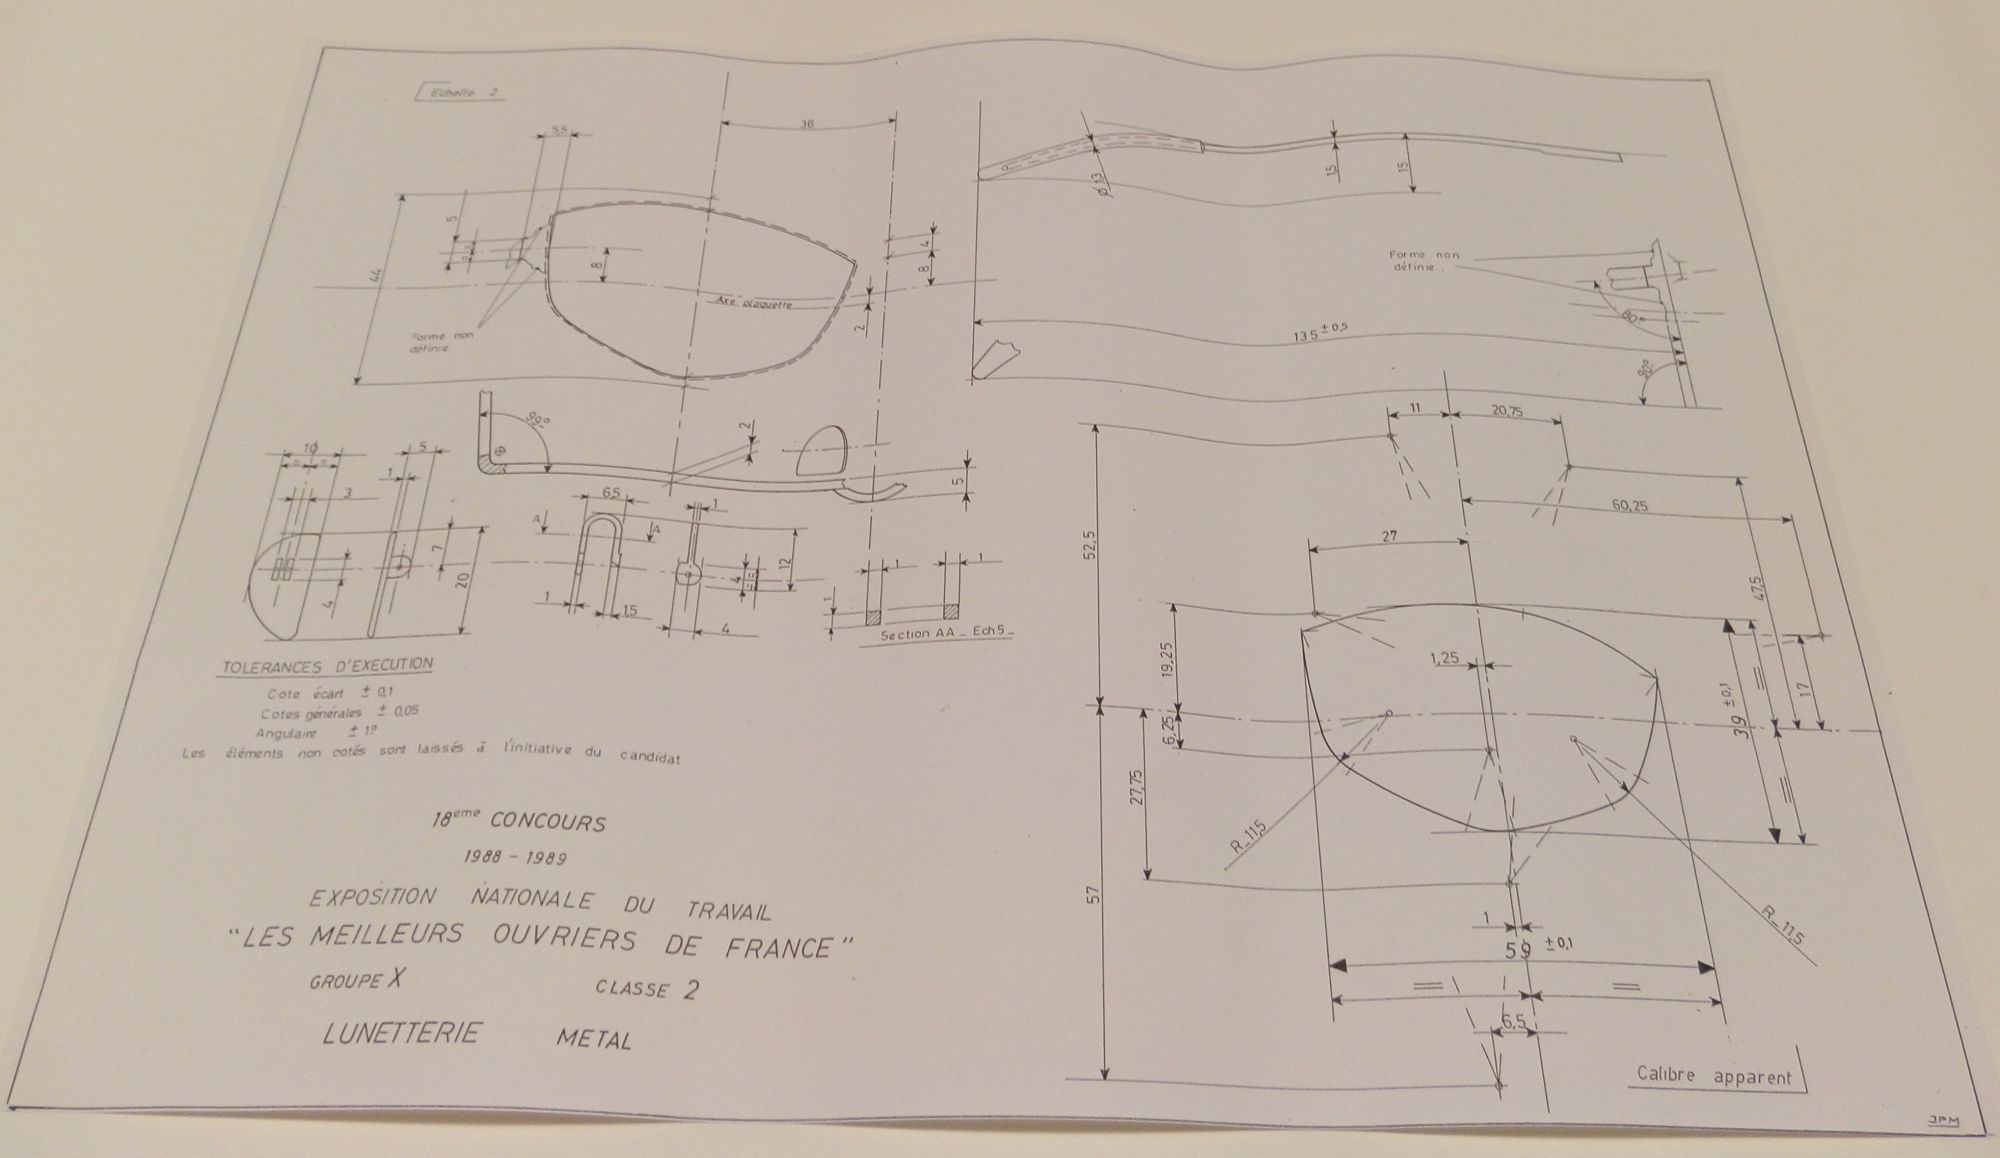 Echelle 2
5,5
36
5
44
8
4
8
2
Axe plaquette
Forme non
définie
ø 1,3
1,5
15
Forme non
définie
80°
135 ± 0,5
80°
99°
2
5
10
= =
5
1
3
7
20
4
6,5
A A
1
12
4
1
1,5
4
1 1
1
Section AA _ Ech 5 _
11
20,75
60,25
52,5
27
47,5
19,25
1,25
39 ± 0,1
=
17
6,25
=
27,75
57
R_11,5
R_11,5
1
59 ± 0,1
= =
6,5
Calibre apparent
TOLERANCES D'EXECUTION
Cote écart ± 0,1
Cotes générales ± 0,05
Angulaire ± 1°
Les éléments non cotés sont laissés à l'initiative du candidat
18eme CONCOURS
1988 - 1989
EXPOSITION NATIONALE DU TRAVAIL
"LES MEILLEURS OUVRIERS DE FRANCE"
GROUPE X CLASSE 2
LUNETTERIE METAL
JPM